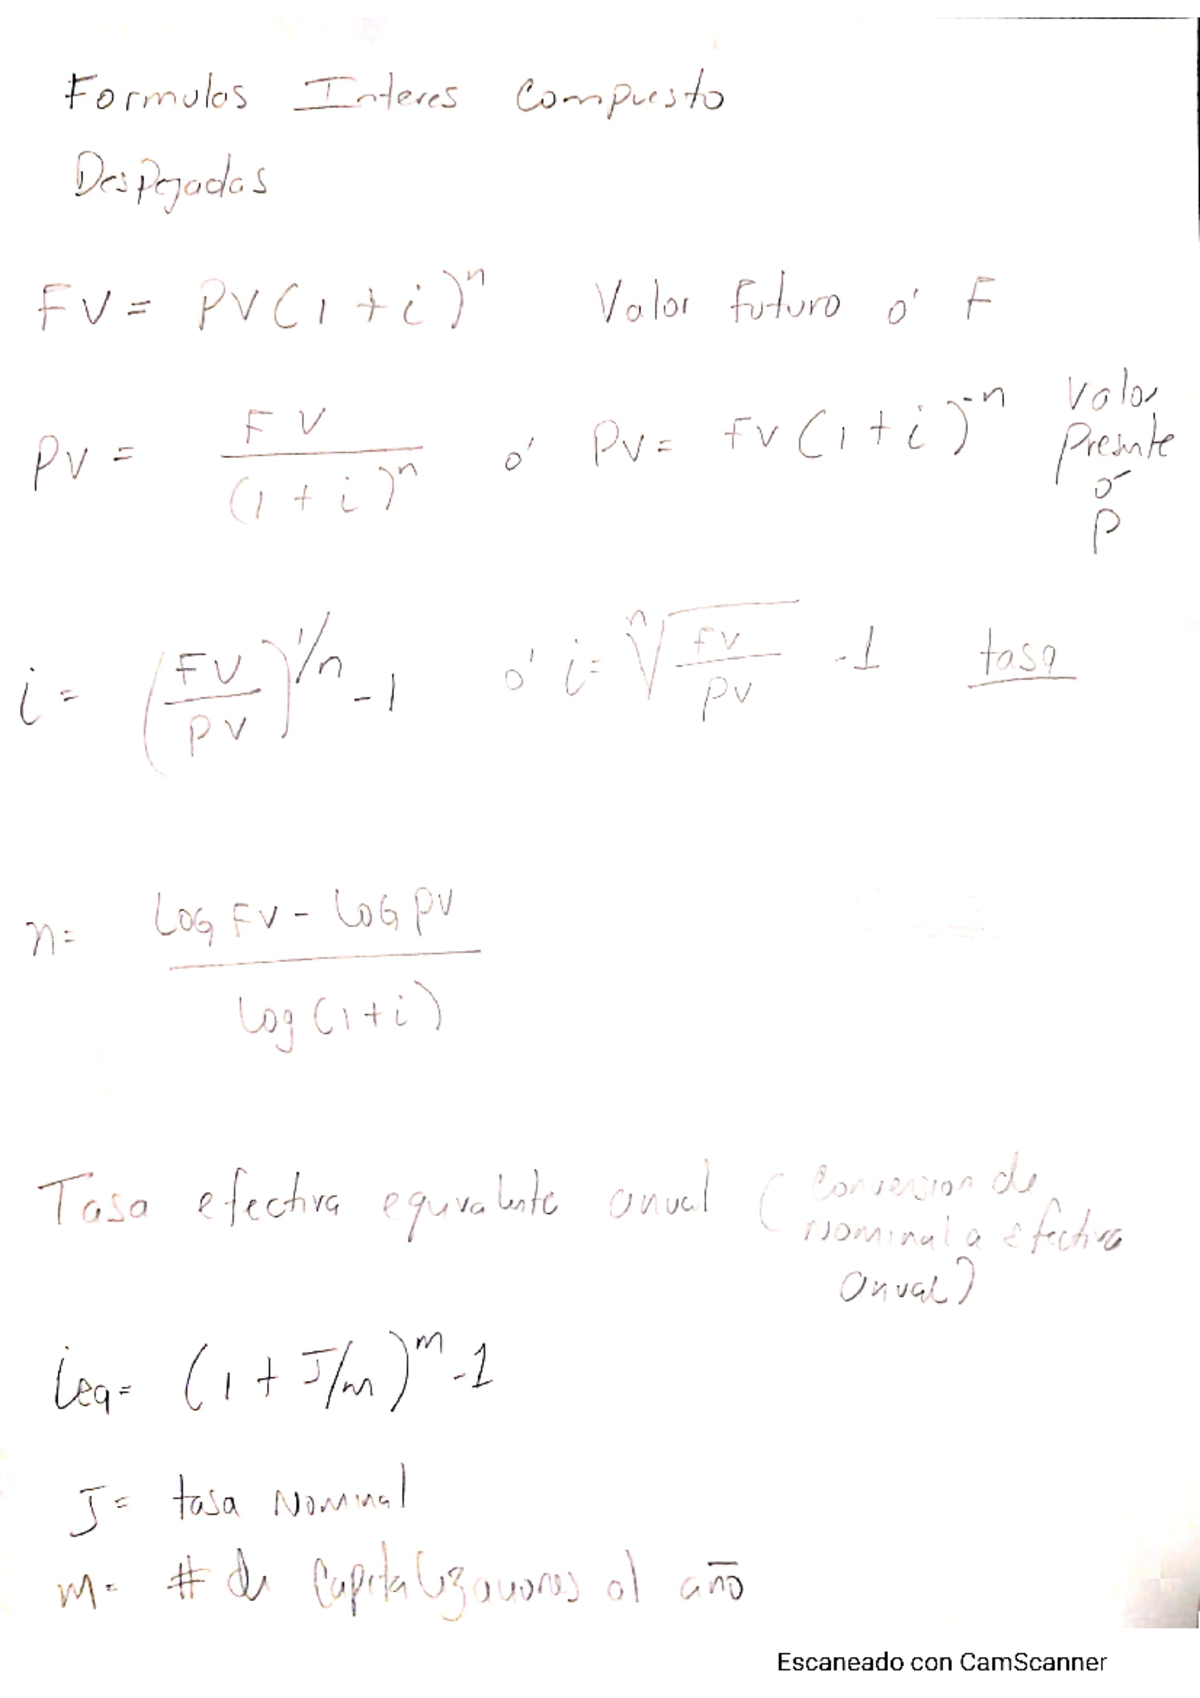 Formulas Interes Compuesto
Despejadas
FV = PV(1+i)^n Valor Futuro ó F
PV = FV/(1+i)^n ó PV = FV(1+i)^-n Valor Presente ó P
i = (FV/PV)^1/n -1 ó i = n√(FV/PV) -1 tasa
n = (LOG FV - LOG PV)/log(1+i)
Tasa efectiva equivalente anual (Conversion de
Nominal a Efectiva
Anual)
ieq = (1 + J/m)^m -1
J = tasa Nominal
m = # de Capitalizaciones al año
Escaneado con CamScanner